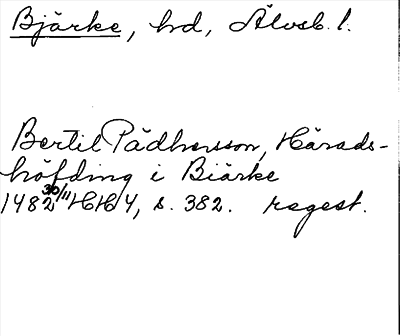 Bjärke, hd, Älvsb. l.
Bertil Pädhersson, Härads-
höfding i Biärke
1482 30/11 HH 4, s. 382. regest.